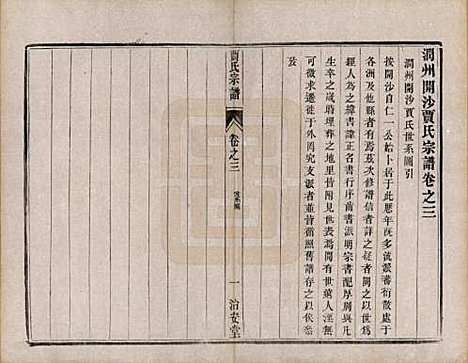 潤州開沙賈氏宗譜卷之三
潤州開沙賈氏世系圖引
按開沙自仁一公始卜居于此歷年既多流派蕃衍散處于
各洲及他縣者均為茲次修譜信者詳之疑者闕之以世系
經人為緯書諱正名字書派明宗書配厚別與
生卒之歲時埋葬之地里皆附見世表焉閱有世萬人湮無
可徵求遷徙于外罔究支派者並皆循照舊譜存之以俟考
及
賈氏宗譜
卷之三
世系圖
一
治安堂